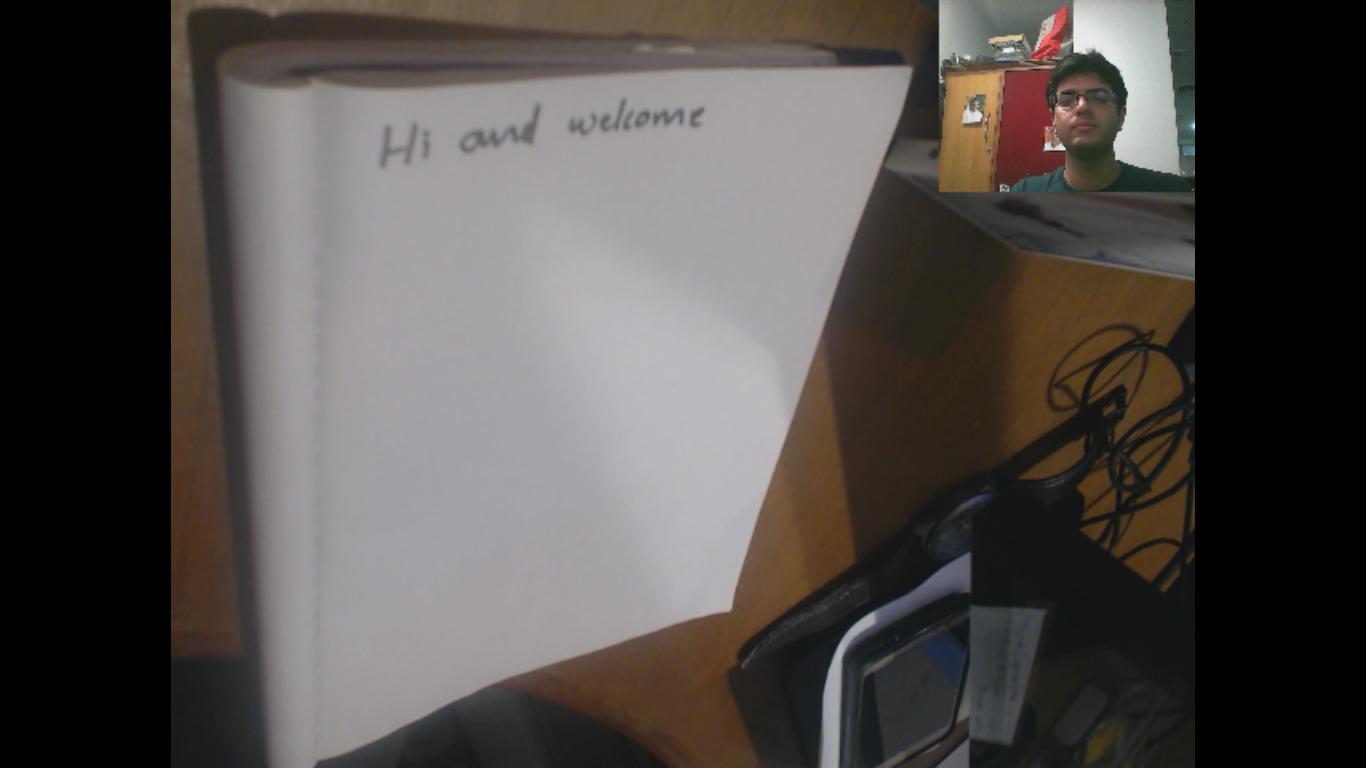 Hi and welcome